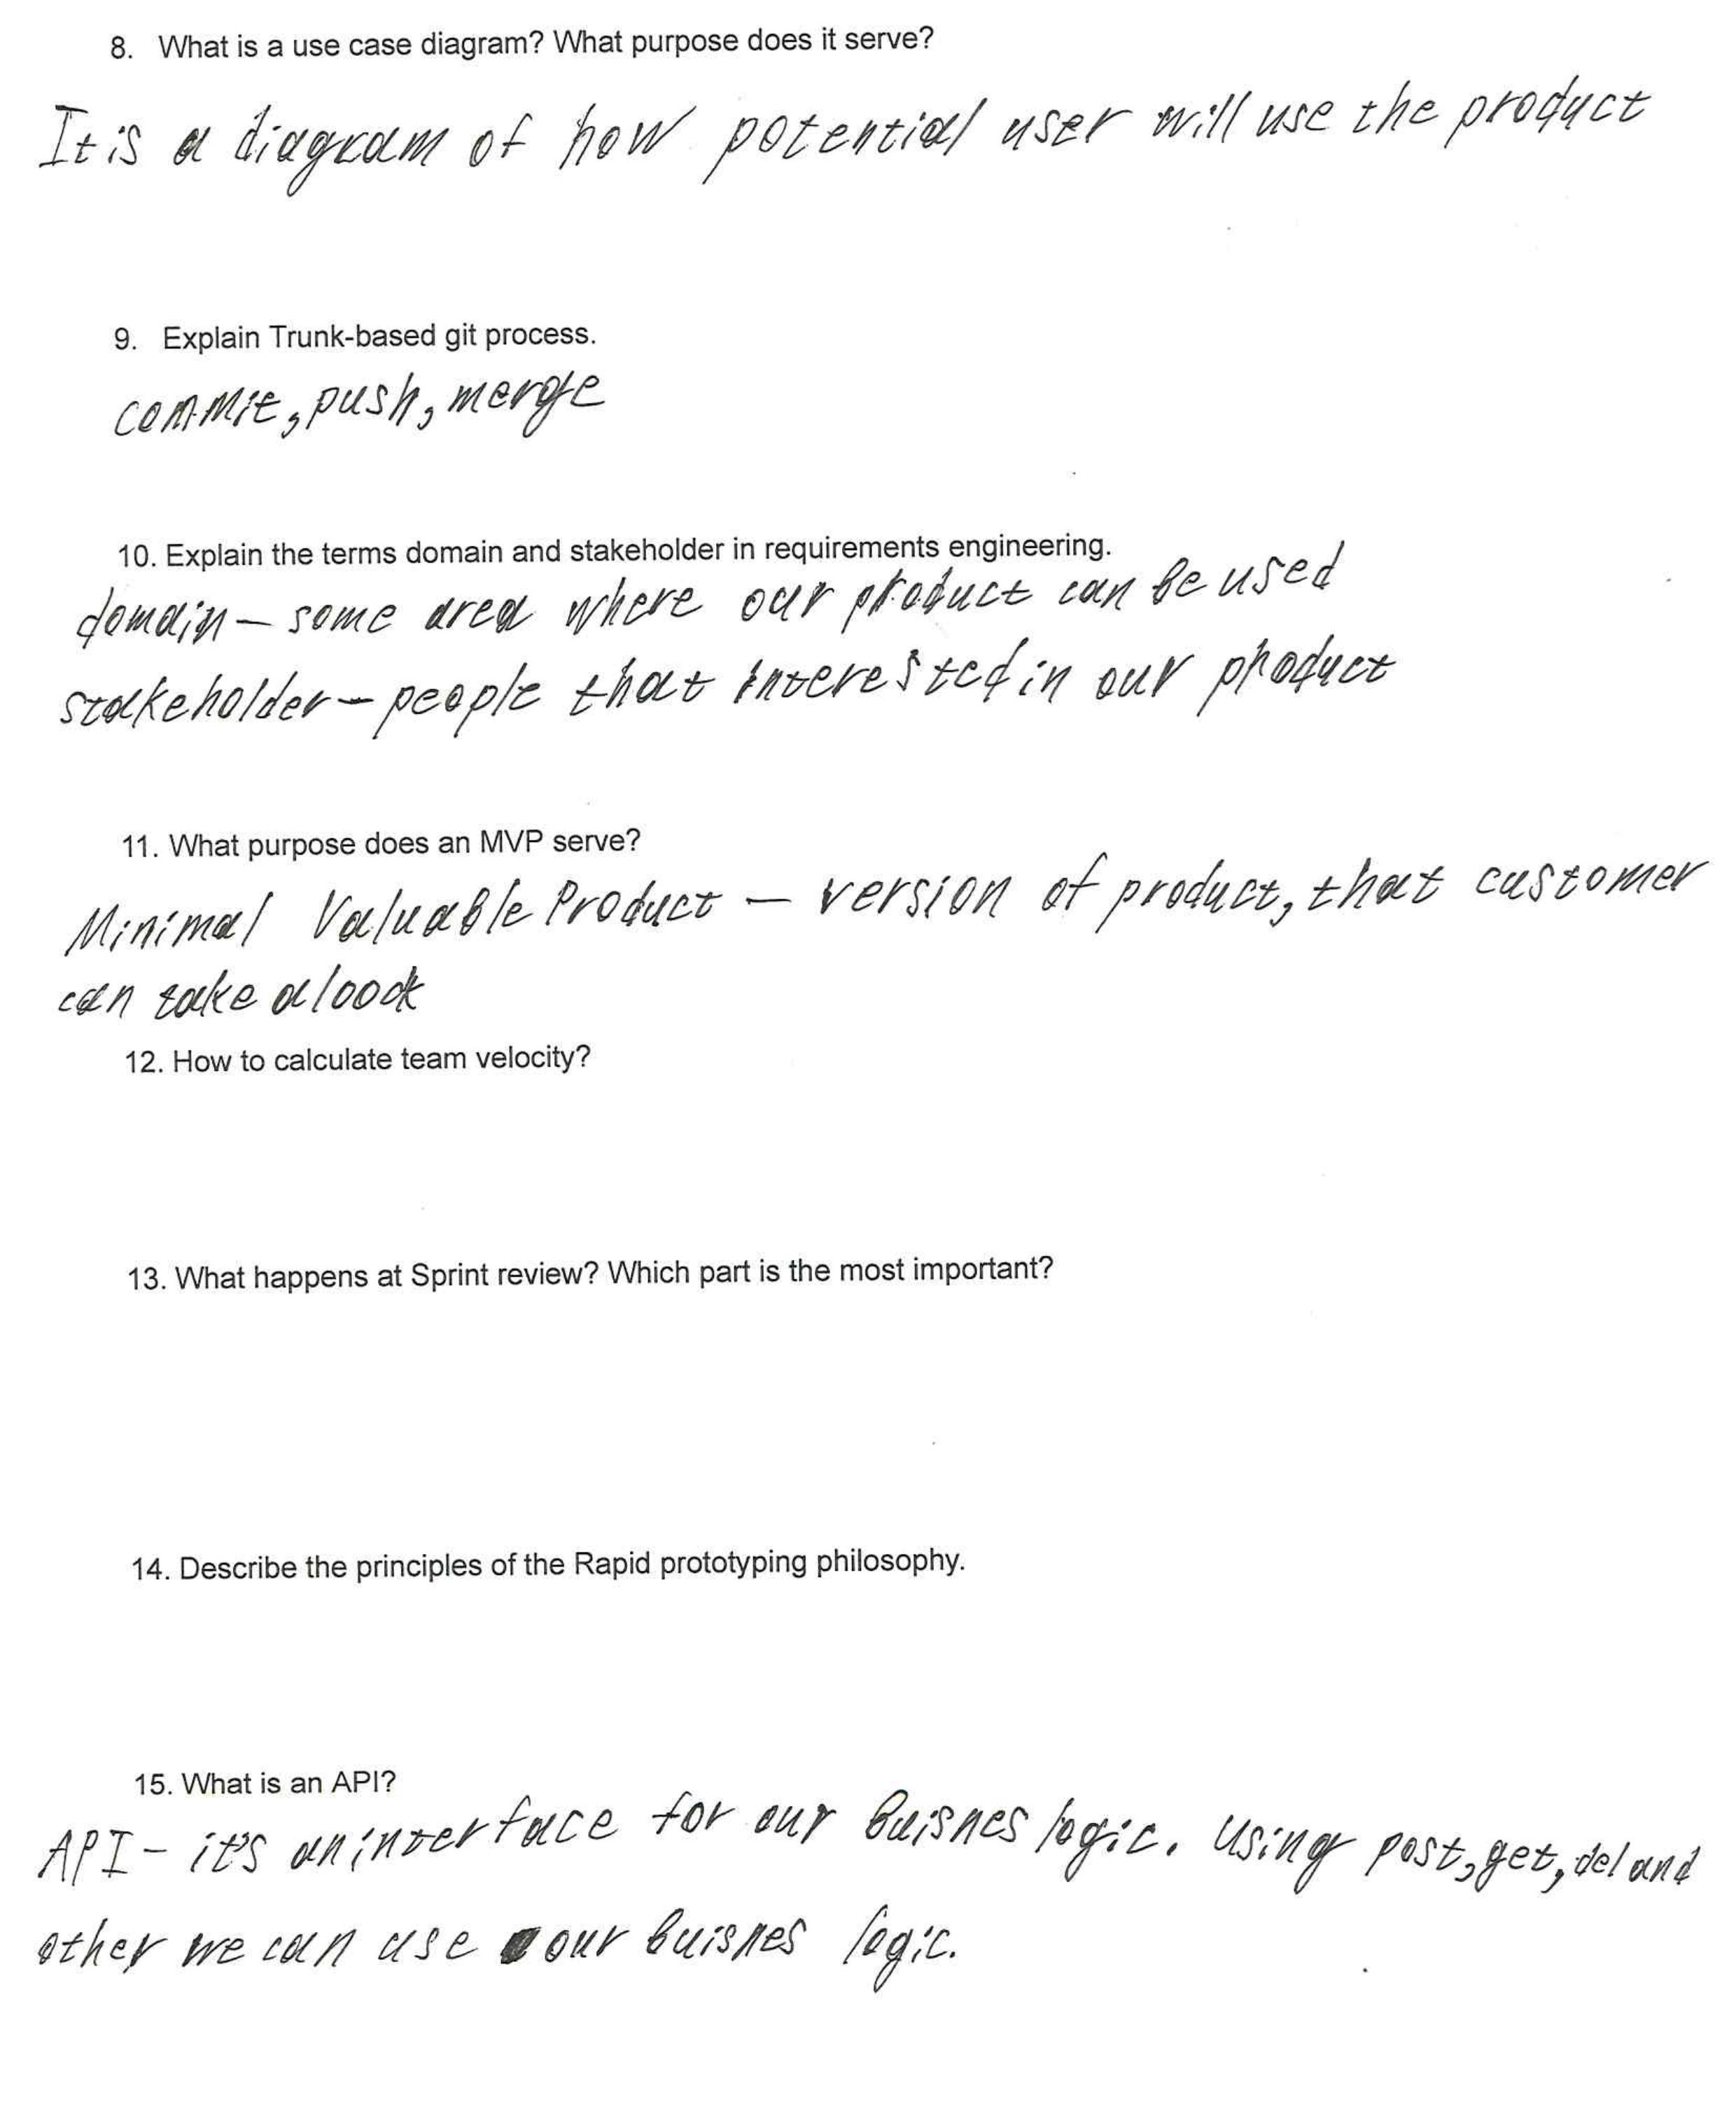 8. What is a use case diagram? What purpose does it serve?
It is a diagram of how potential user will use the product
9. Explain Trunk-based git process.
commit, push, merge
10. Explain the terms domain and stakeholder in requirements engineering.
domain – some area where our product can be used
stakeholder – people that interested in our product
11. What purpose does an MVP serve?
Minimal Valuable Product – version of product, that customer
can take a look
12. How to calculate team velocity?
13. What happens at Sprint review? Which part is the most important?
14. Describe the principles of the Rapid prototyping philosophy.
15. What is an API?
API - it's an interface for our buisnes logic. Using post, get, del and
other we can use our buisnes logic.